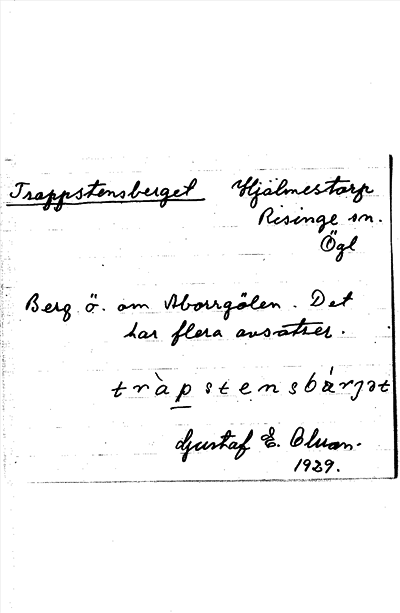 Trappstensberget Hjälmestorp
Risinge sn.
Ögl
Berg ö. om Aborrgölen. Det
har flera avsatser.
tràpstensbárjət
Gustaf E. Cluan.
1929.